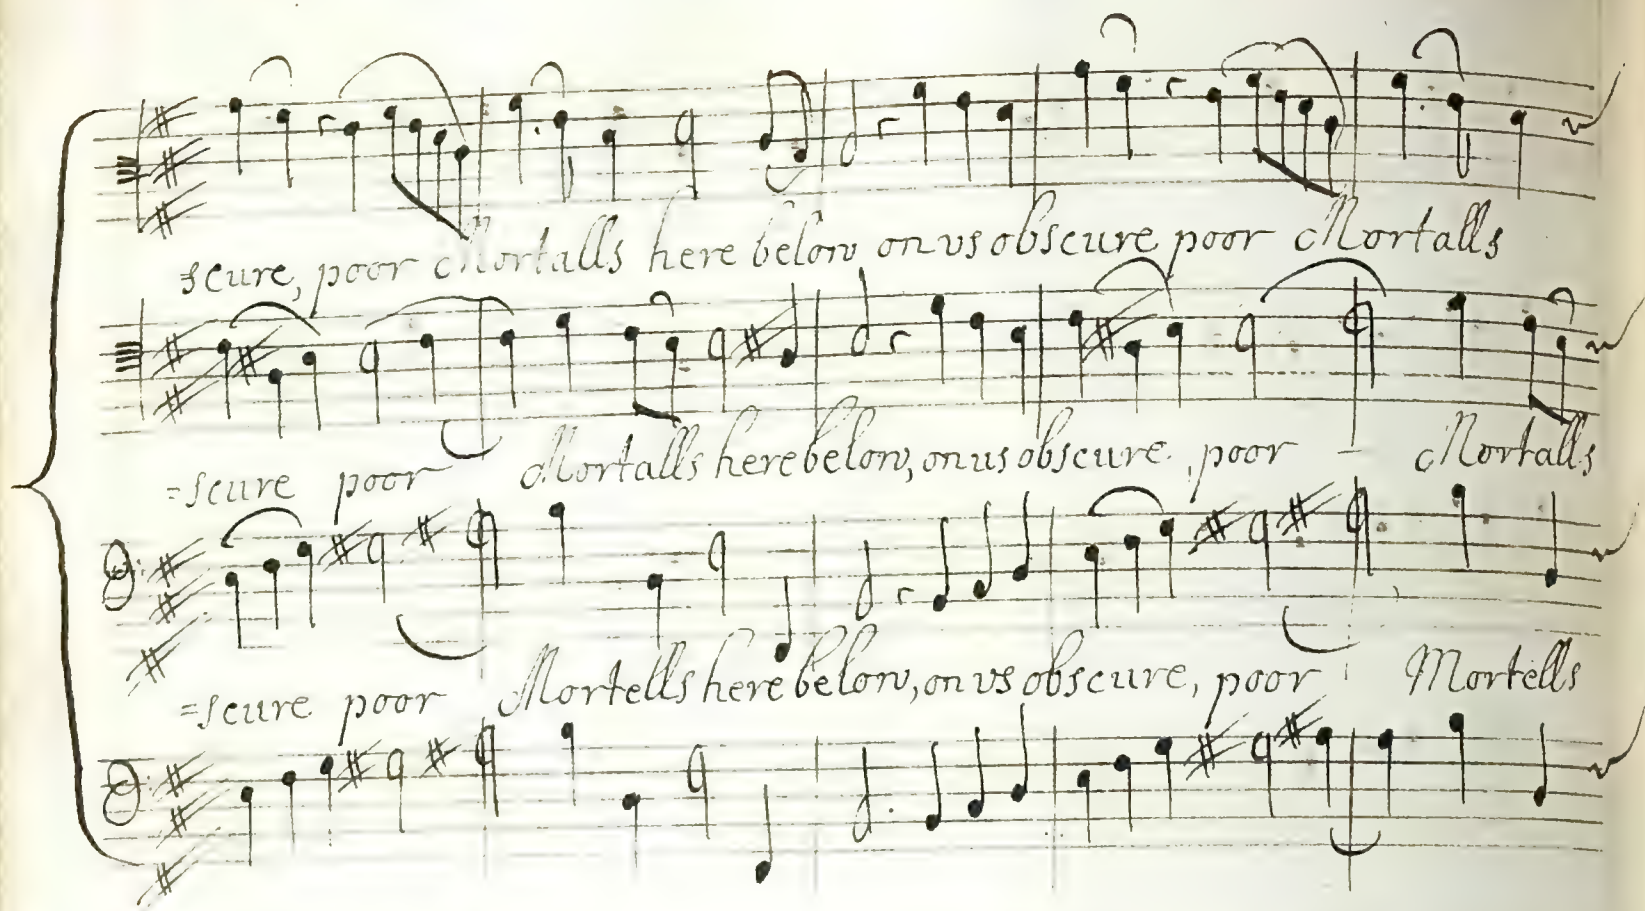 =scure, poor Mortalls here below on vs obscure poor Mortalls
=scure poor Mortalls here below, on us obscure, poor – Mortalls
=scure poor Mortells here below, on vs obscure, poor Mortells